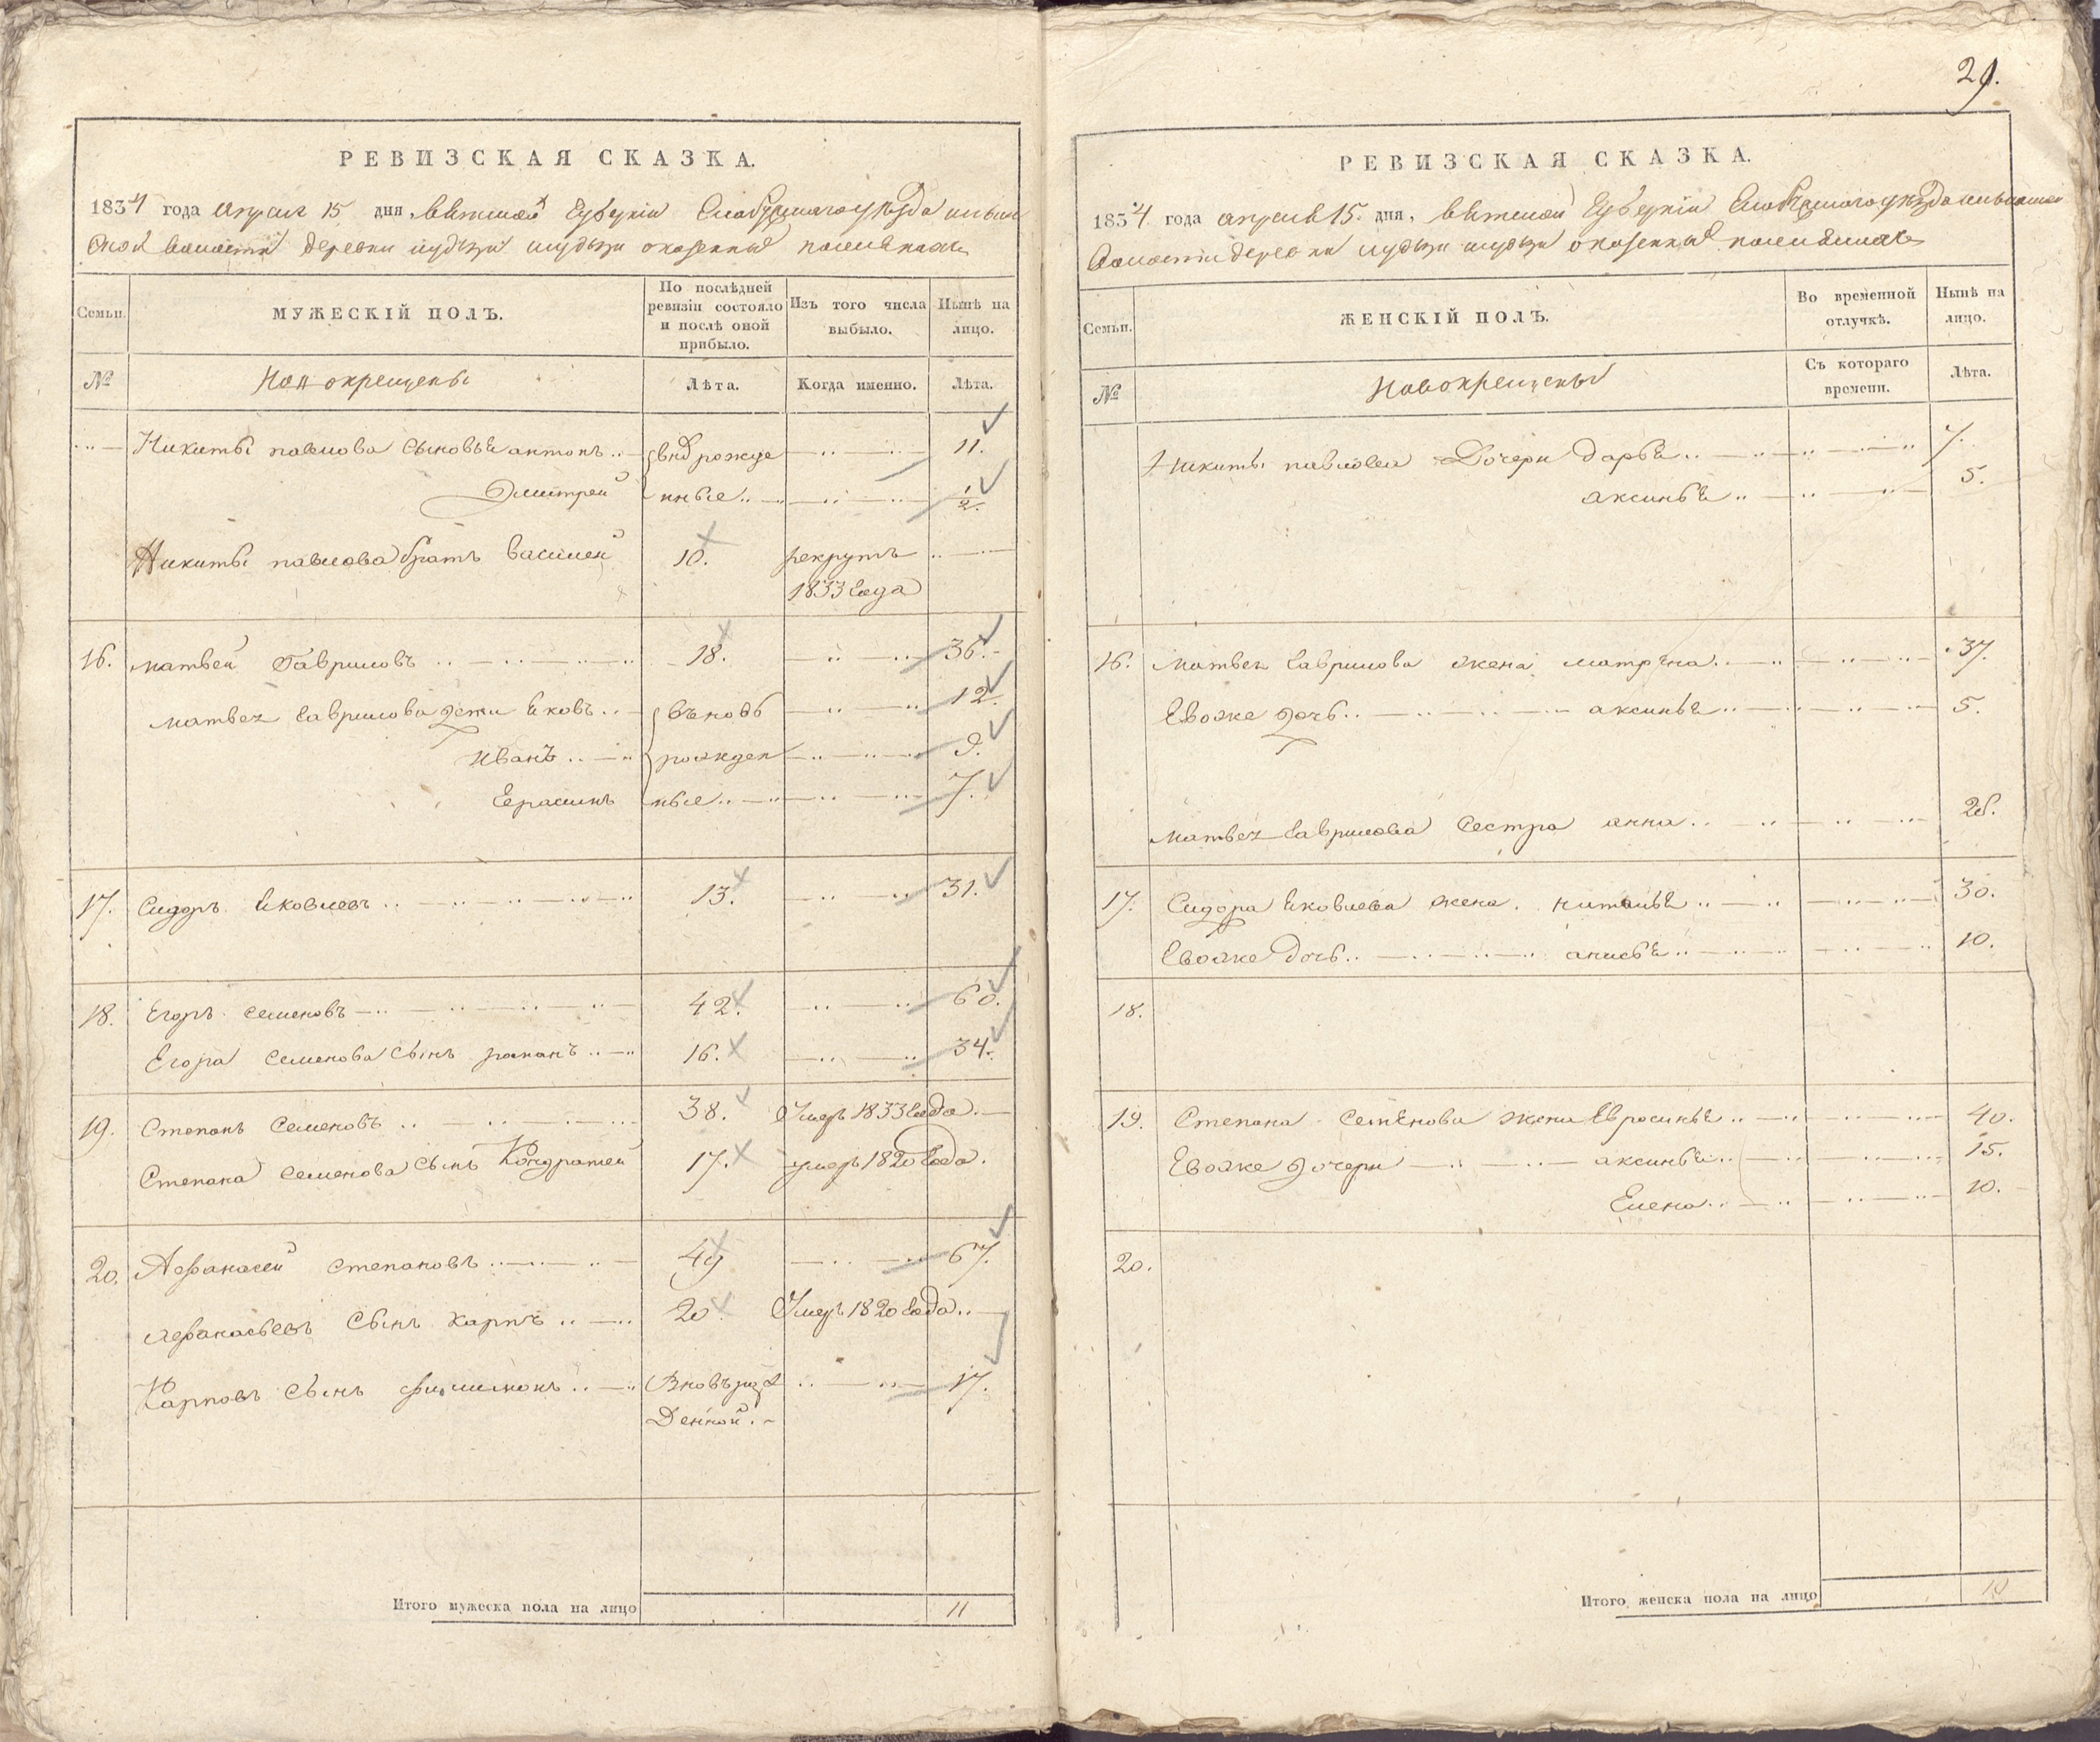 РЕВИЗСКАЯ СКАЗКА.
1834 года апреля 15 дня, вятской губернии Слободского уезда
ской волости деревни о казенных поселянах
Семьи. МУЖЕСКІЙ ПОЛЪ. По послѣдней ревизіи состояло и послѣ оной прибыло. Изъ того числа выбыло. Нынѣ на лицо.
№ Новокрещены Лѣта. Когда именно. Лѣта.
Никиты павлова сыновья антонъ внов рожде 11.
Дмитрей нные 1/2.
Никиты павлова братъ василей 10. рекрутъ
1833 года
16. матвей Гавриловъ 18. 36.
матвея гаврилова дети яковъ вновь 12.
иванъ рожден 9.
Герасимъ ные 7.
17. Сидоръ яковлевъ 13. 31.
18. Егоръ семеновъ 42. 60.
Егора семенова сынъ романъ 16. 34.
19. Степанъ семеновъ 38. Умеръ 1833 года.
Степана семенова сынъ Кондратей 17. умеръ 1820 года.
20. Афанасей степановъ 49 67.
Афанасьевъ сынъ карпъ 20. Умеръ 1820 года
Карповъ сынъ филимонъ Вновь рож 17.
денной.
Итого мужеска пола на лицо 11
29.
РЕВИЗСКАЯ СКАЗКА.
1834 года апреля 15. дня, вятской губернии Слободского уезда
волости деревни о казенных поселянах
Семьи. ЖЕНСКІЙ ПОЛЪ. Во временной отлучкѣ. Нынѣ на лицо.
№ Новокрещены Съ котораго времени. Лѣта.
Никиты павлова Дочери дарья 7.
аксинья 5.
16. матвея гаврилова жена матрена 37.
Евоже дочь аксинья 5.
матвея гаврилова сестра анна 26.
17. Сидора яковлева жена наталья 30.
Евоже дочь анисья 10.
18.
19. Степана семенова жена Евросинья 40.
Евоже дочери аксинья 15.
Елена 10.
20.
Итого женска пола на лицо 10